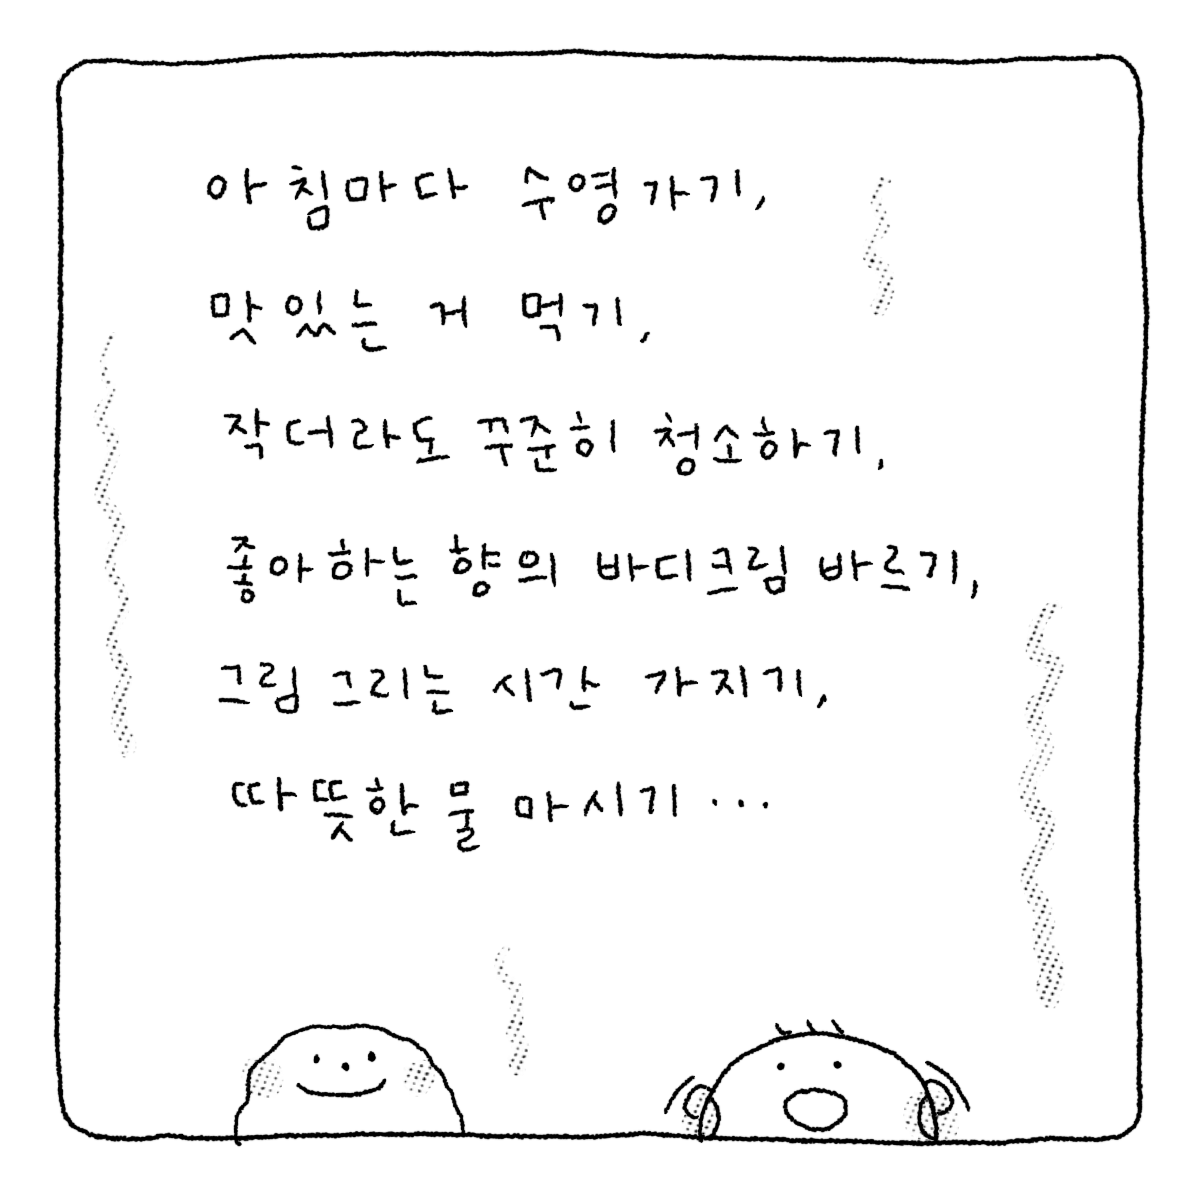 아침마다 수영가기,
맛있는 거 먹기,
작더라도 꾸준히 청소하기,
좋아하는 향의 바디크림 바르기,
그림 그리는 시간 가지기,
따뜻한 물 마시기 ···